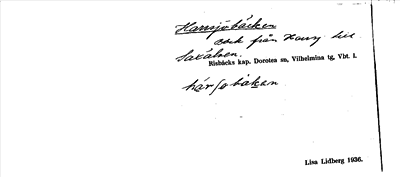 Harrsjöbäcken
bäck från Harrsj. till
Saxälven.
Risbäcks kap. Dorotea sn, Vilhelmina tg, Vbt. l.
hárʃobäkan
Lisa Lidberg 1936.